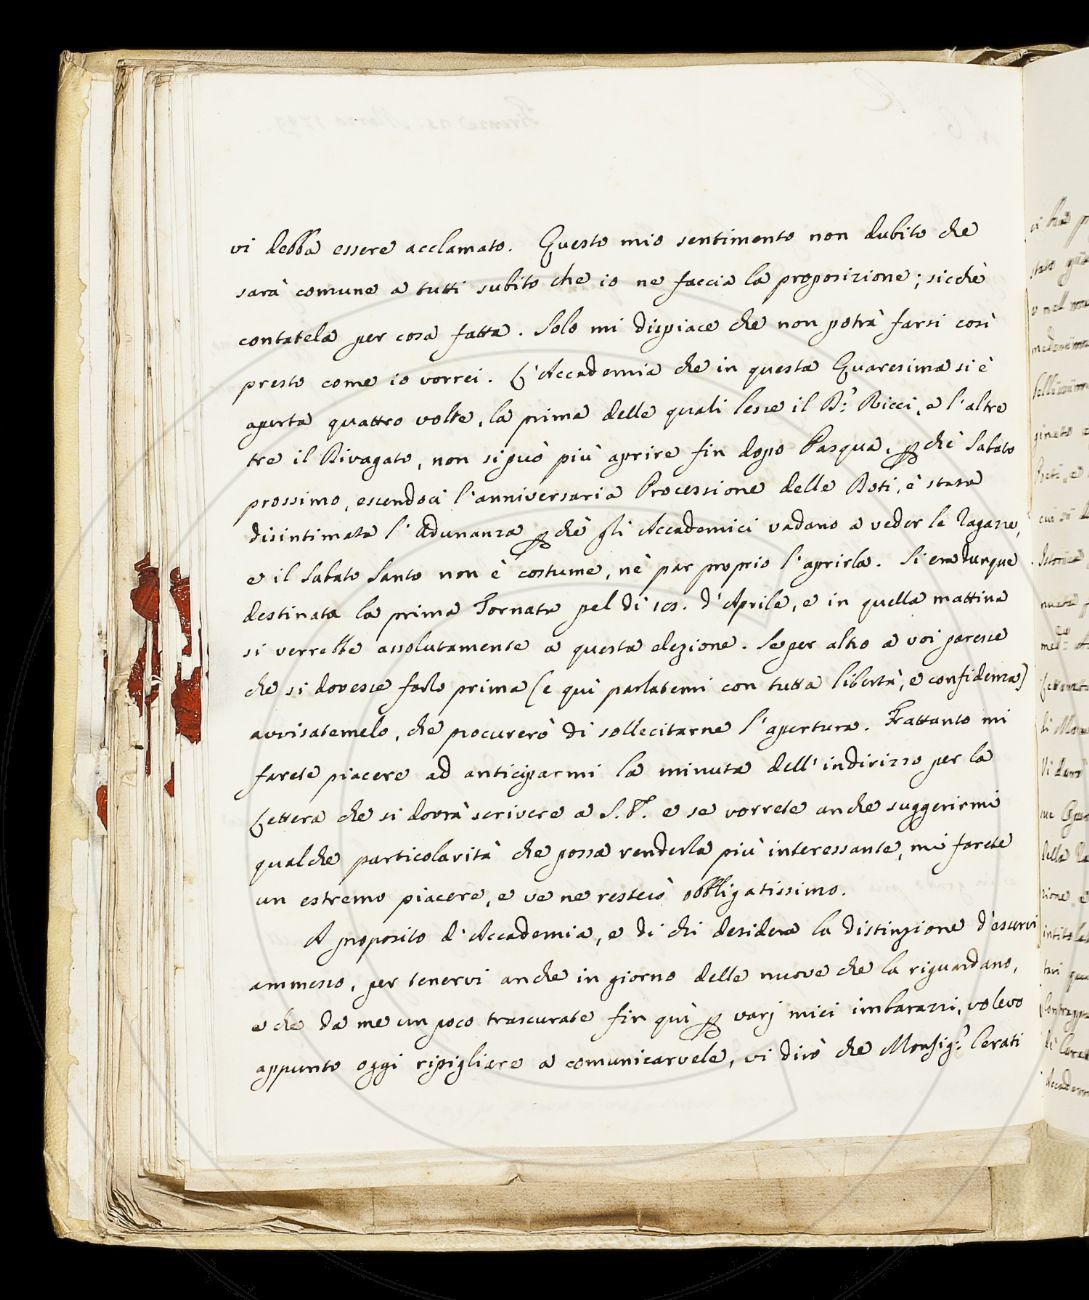 vi debba essere acclamato. Questo mio sentimento non dubito che
sarà comune a tutti subito che io ne faccia la proposizione; sicchè
contatela per cosa fatta. Solo mi dispiace che non potrà farsi così
presto come io vorrei. L'Accademia che in questa Quaresima si è
aperta quattro volte, la prima delle quali lesse il D.r Ricci, e l'altre
tre il Divagato, non si può più aprire fin dopo Pasqua, p chè Sabato
prossimo, essendoci l'anniversaria Processione delle Doti, è stata
disintimata l'Adunanza p chè gli Accademici vadano a veder le Ragazze,
e il Sabato Santo non è costume, nè par proprio l'aprirla. Si era dunque
destinata la prima Tornata pel dì 10. d'Aprile, e in quella mattina
si verrebbe assolutamente a questa elezione. Se per altro a voi paresse
che si dovesse farlo prima (e quì parlatemi con tutta libertà, e confidenza)
avvisatemelo, che procurerò di sollecitarne l'apertura. Frattanto mi
farete piacere ad anticiparmi la minuta dell'indirizzo per la
Lettera che si dovrà scrivere a S. E. e se vorrete anche suggerirmi
qualche particolarità che possa renderla più interessante, mi farete
un estremo piacere, e ve ne resterò obbligatissimo.
A proposito d'Accademia, e di chi desidera la distinzione d'esservi
ammesso, per tenervi anche in giorno delle nuove che la riguardano,
e che da me un poco trascurate fin quì p varj miei imbarazzi, volevo
appunto oggi ripigliare a comunicarvele, vi dirò che Monsig.r Cerati